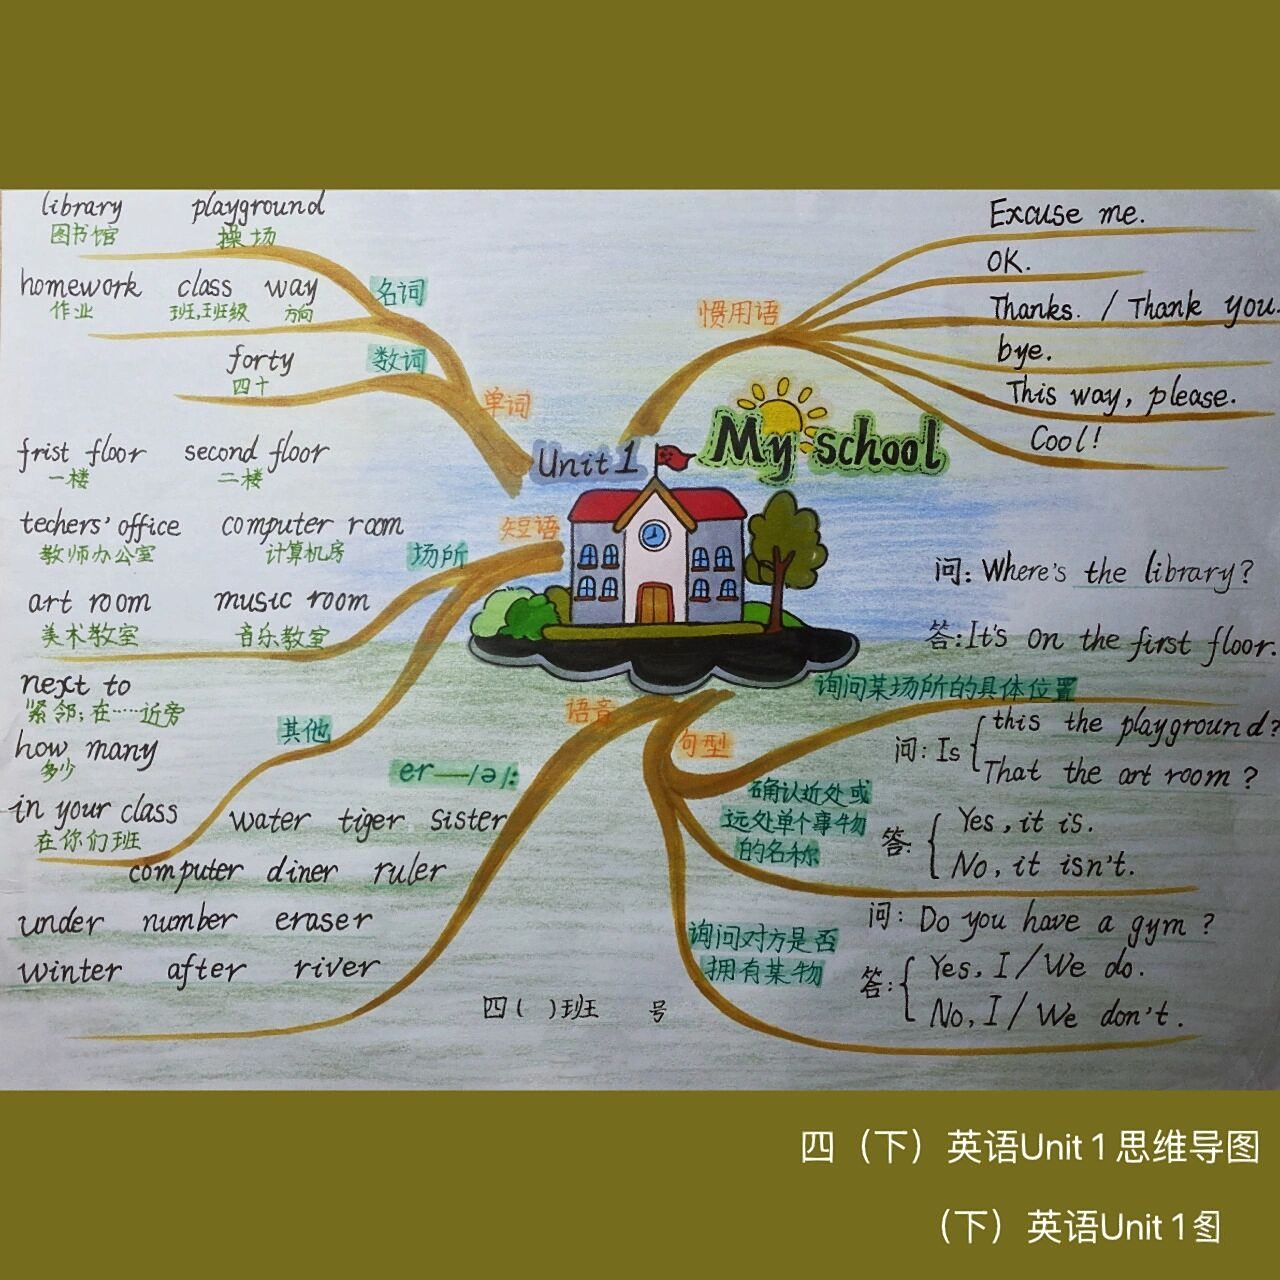 library playground
图书馆 操场
homework class way
作业 班,班级 方向
名词
forty
四十
数词
单词
frist floor second floor
一楼 二楼
techers' office computer room
教师办公室 计算机房
art room music room
美术教室 音乐教室
场所
短语
next to
紧邻;在……近旁
how many
多少
in your class
在你们班
其他
语音
er—/ə/:
water tiger sister
computer diner ruler
under number eraser
winter after river
Unit 1
My school
惯用语
Excuse me.
OK.
Thanks. / Thank you.
bye.
This way, please.
Cool!
句型
问: Where's the library?
答: It's on the first floor.
询问某场所的具体位置
问: Is this the playground?
That the art room?
答: Yes, it is.
No, it isn't.
确认近处或
远处单个事物
的名称
问: Do you have a gym?
答: Yes, I / We do.
No, I / We don't.
询问对方是否
拥有某物
四( )班 号
四（下）英语Unit 1 思维导图
（下）英语Unit 1图